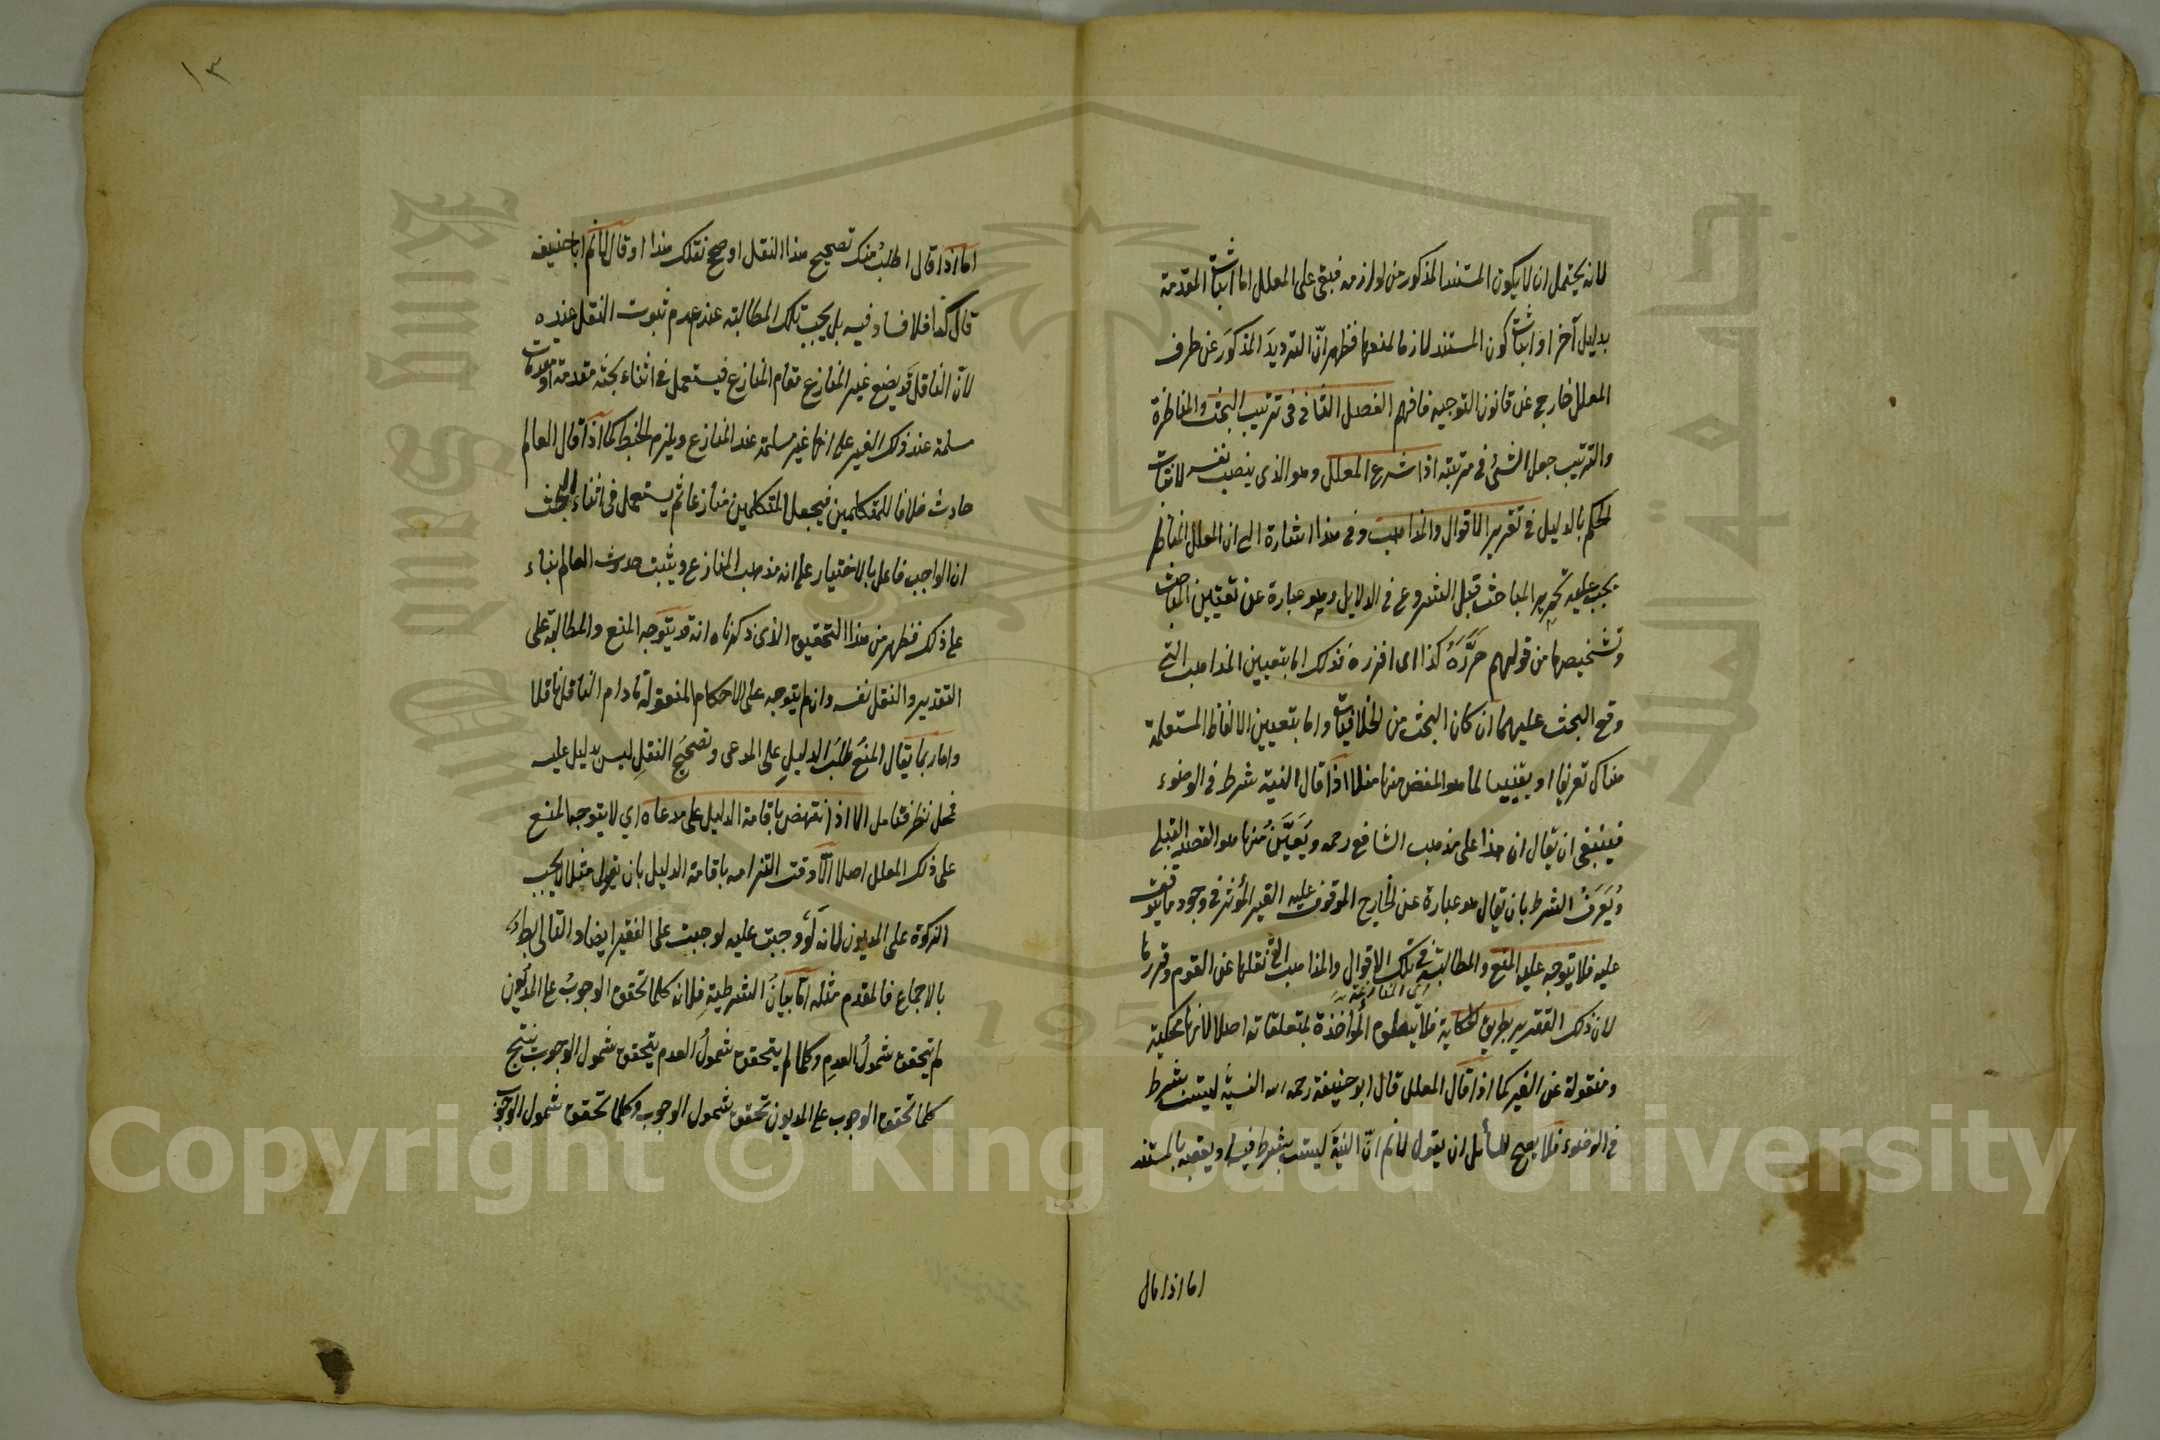 لانه يحتمل ان لا يكون المستند المذكور من لوازمه فبقى على المعلل اما اثبات المقدمة
بدليل آخر او اثبات كون المستند لازما لمنعها فظهر انّ الترديدَ المذكورَ عن طرف
المعلل خارج عن قانون التوجيه فافهم الفصل الثانى فى ترتيب البحث والمناظرة
والترتيب جعل الشئ فى مرتبته اذا شرع المعلل وهو الذى ينصب نفسه لاثبات
الحكم بالدليل فى تقرير الاقوال والمذاهب وفى هذا اشارة الى ان المعلل المناظر
يجب عليه تحرير المباحث قبل الشروع فى الدلايل وهو عبارة عن تعيين المباحث
وتشخيصها من قولهم حَرَّرَهُ كذا اى افرزه فذلك اما بتعيين المذاهب التى
وقع البحث عليهما ان كان البحث من الخلافيات واما بتعيين الالفاظ المستعملة
هناك تعريفا او تعيينا لما هو المغض منها مثلا اذا قال النية شرط فى الوضوء
فينبغى ان يقال ان هذا على مذهب الشافع رحمه ويُعَيَّنُ منها هو القصد القبلى
ويُعَرَفُ الشرط بان يقال هو عبارة عن الخارج الموقوف عليه الغير المؤثر فى وجود ما يتوقف
عليه فلا يتوجه عليه المنع والمطالبة فى تلك الاقوال والمذاهب التى نقلها عن القوم وقررها
لان ذلك التقرير بطريق الحكاية فلا المؤاخذة بمتعلقاته اصلا لانها محكية
ومنقولة عن الغير كما اذا قال المعلل قال ابو حنيفة رحمه الله النيةُ ليست بشرط
فى الوضوء فلا يصح للسائل ان يقول لانم انّ النيةَ ليست بشرط فيه او يعقبه بالمستند
اما اذا قال
١٣
اما اذا قال اطلبُ منك تصحيح هذا النقل او صحح نقلك هذا او قال لانم ان ابا حنيفه
قال كذا فلا فساد فيه بل يجب تلك المطالبته عند عدم ثبوت النقل عنده
لانّ الناقل قد يضع غير المنازع مقام المنازع فيستعمل فى اثناء بحثه مقدمة او مقدمات
مسلمة عند ذلك الغير على انها غير مسلمة عند المنازع ويلزم الخبط كما اذا قال العالم
حادث خلافا للمتكلمين فيجعل المتكلمين منازعا ثم يستعمل فى اثناء البحث
ان الواجب فاعل بالاختيار على انه مذهب المنازع ويثبت حدوث العالم بناء
على ذلك فظهر من هذا التحقيق الذى ذكرناه انه قد يتوجه المنع والمطالبة على
التقدير والنقل نفسه وان لم يتوجه على الاحكام المنقولة ما دام الناقل ناقلا
واما ربما يقال المنعُ طلبُ الدليلِ على المدعى وتصحيحُ النقلِ ليس بدليل عليه
فمحل نظر فتامل الا اذا انتهض باقامة الدليل على مدعاه اي لا يتوجه المنع
على ذلك المعلل اصلا الّا وقت التزامه باقامة الدليل بان يقول مثلا لا يجب
الزكوة على المديون لانه لو وجبت عليه لوجبت على الفقير ايضا والتالى باطل
بالاجماع فالمقدم مثله امّا بيانُ الشرطيةِ فلانه كلما تحقق الوجوبُ على المديون
لم يتحقق شمولُ العدمِ وكلما لم يتحقق شمولُ العدم يتحقق شمول الوجوب ينتج
كلما تحقق الوجوب على المديون تحقق شمول الوجوب وكلما تحقق شمول الوجوب
Copyright © King Saud University